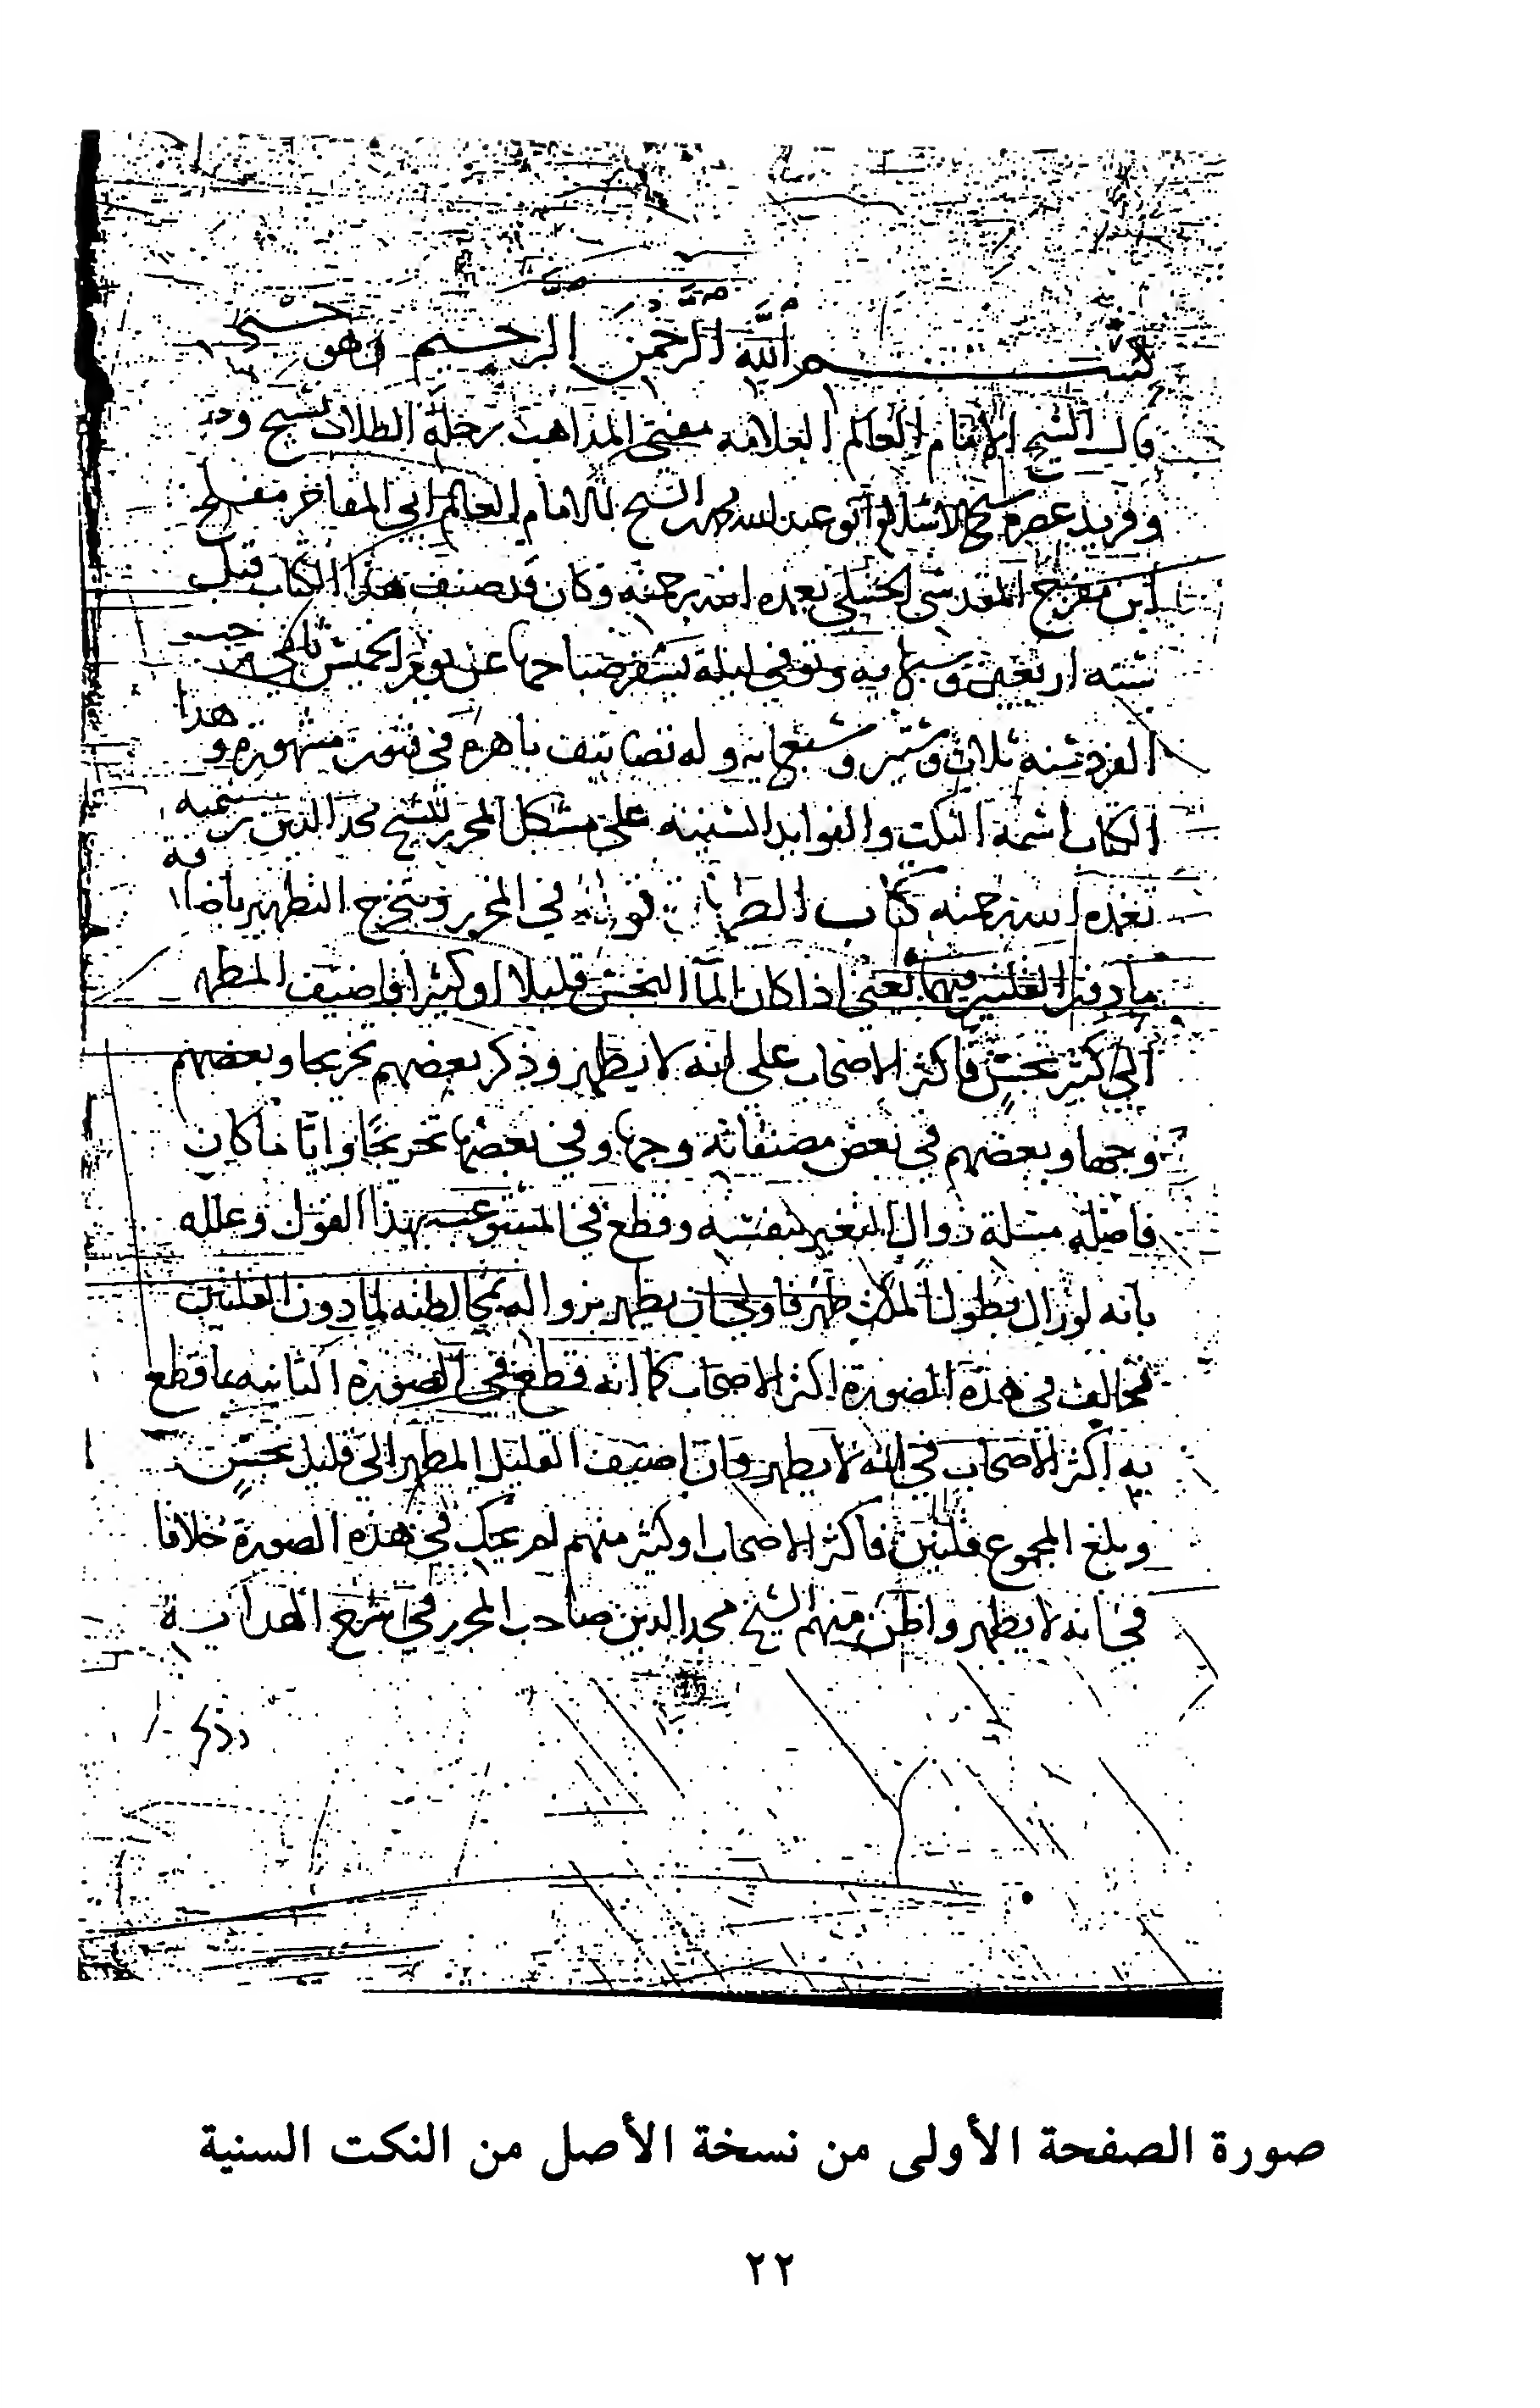 بسم الله الرحمن الرحيم وهو حسبي
قال الشيخ الامام العالم العلامه مفتي المذاهب رحلة الطلاب نسيج وحد
وفريد عصره شيخ الاسلام ابو عبد الله محمد بن الشيخ الامام العالم ابي المفاخر مفلح
ابن مفرج المقدسي الحنبلي تغمده الله برحمته وكان قد صنف هذا الكتاب قبل
سنة اربعين وسبعمايه وتوفي ليلة يسفر صباحها عن يوم الخميس ثاني رجب
الفرد سنة ثلاث وستين وسبعمايه وله تصانيف باهرة في فنون مشهورة وهذا
الكتاب اسمه النكت والفوايد السنية على مشكل المحرر للشيخ مجد الدين بن تيمية
تغمده الله برحمته كتاب الطهارة قوله في المحرر ويتخرج التطهير باضافة
ما دون القلتين فيهما يعني اذا كان الماء النجس قليلا او كثيرا فاضيف المطهر
الى كثير نجس فاكثر الاصحاب على انه لا يطهر وذكر بعضهم تخريجا وبعضهم
وجها وبعضهم في بعض مصنفاته وجها وفي بعضها تخريجا وايا ما كان
فاصله مسئلة زوال التغير بنفسه وقطع في المستوعب بهذا القول وعلله
بانه لو زال بطول المكث طهر فاولى ان يطهر بزواله بمخالطته لما دون القلتين
فخالف في هذه الصورة اكثر الاصحاب كما انه قطع في الصورة الثانيه بما قطع
به اكثر الاصحاب في انه لا يطهر وان اضيف القليل المطهر الى قليل نجس
وبلغ المجموع قلتين فاكثر الاصحاب او كثير منهم لم يحك في هذه الصورة خلافا
في انه لا يطهر واظن منهم الشيخ مجد الدين صاحب المحرر في شرح الهداية
وذكر
صورة الصفحة الأولى من نسخة الأصل من النكت السنية
٢٢